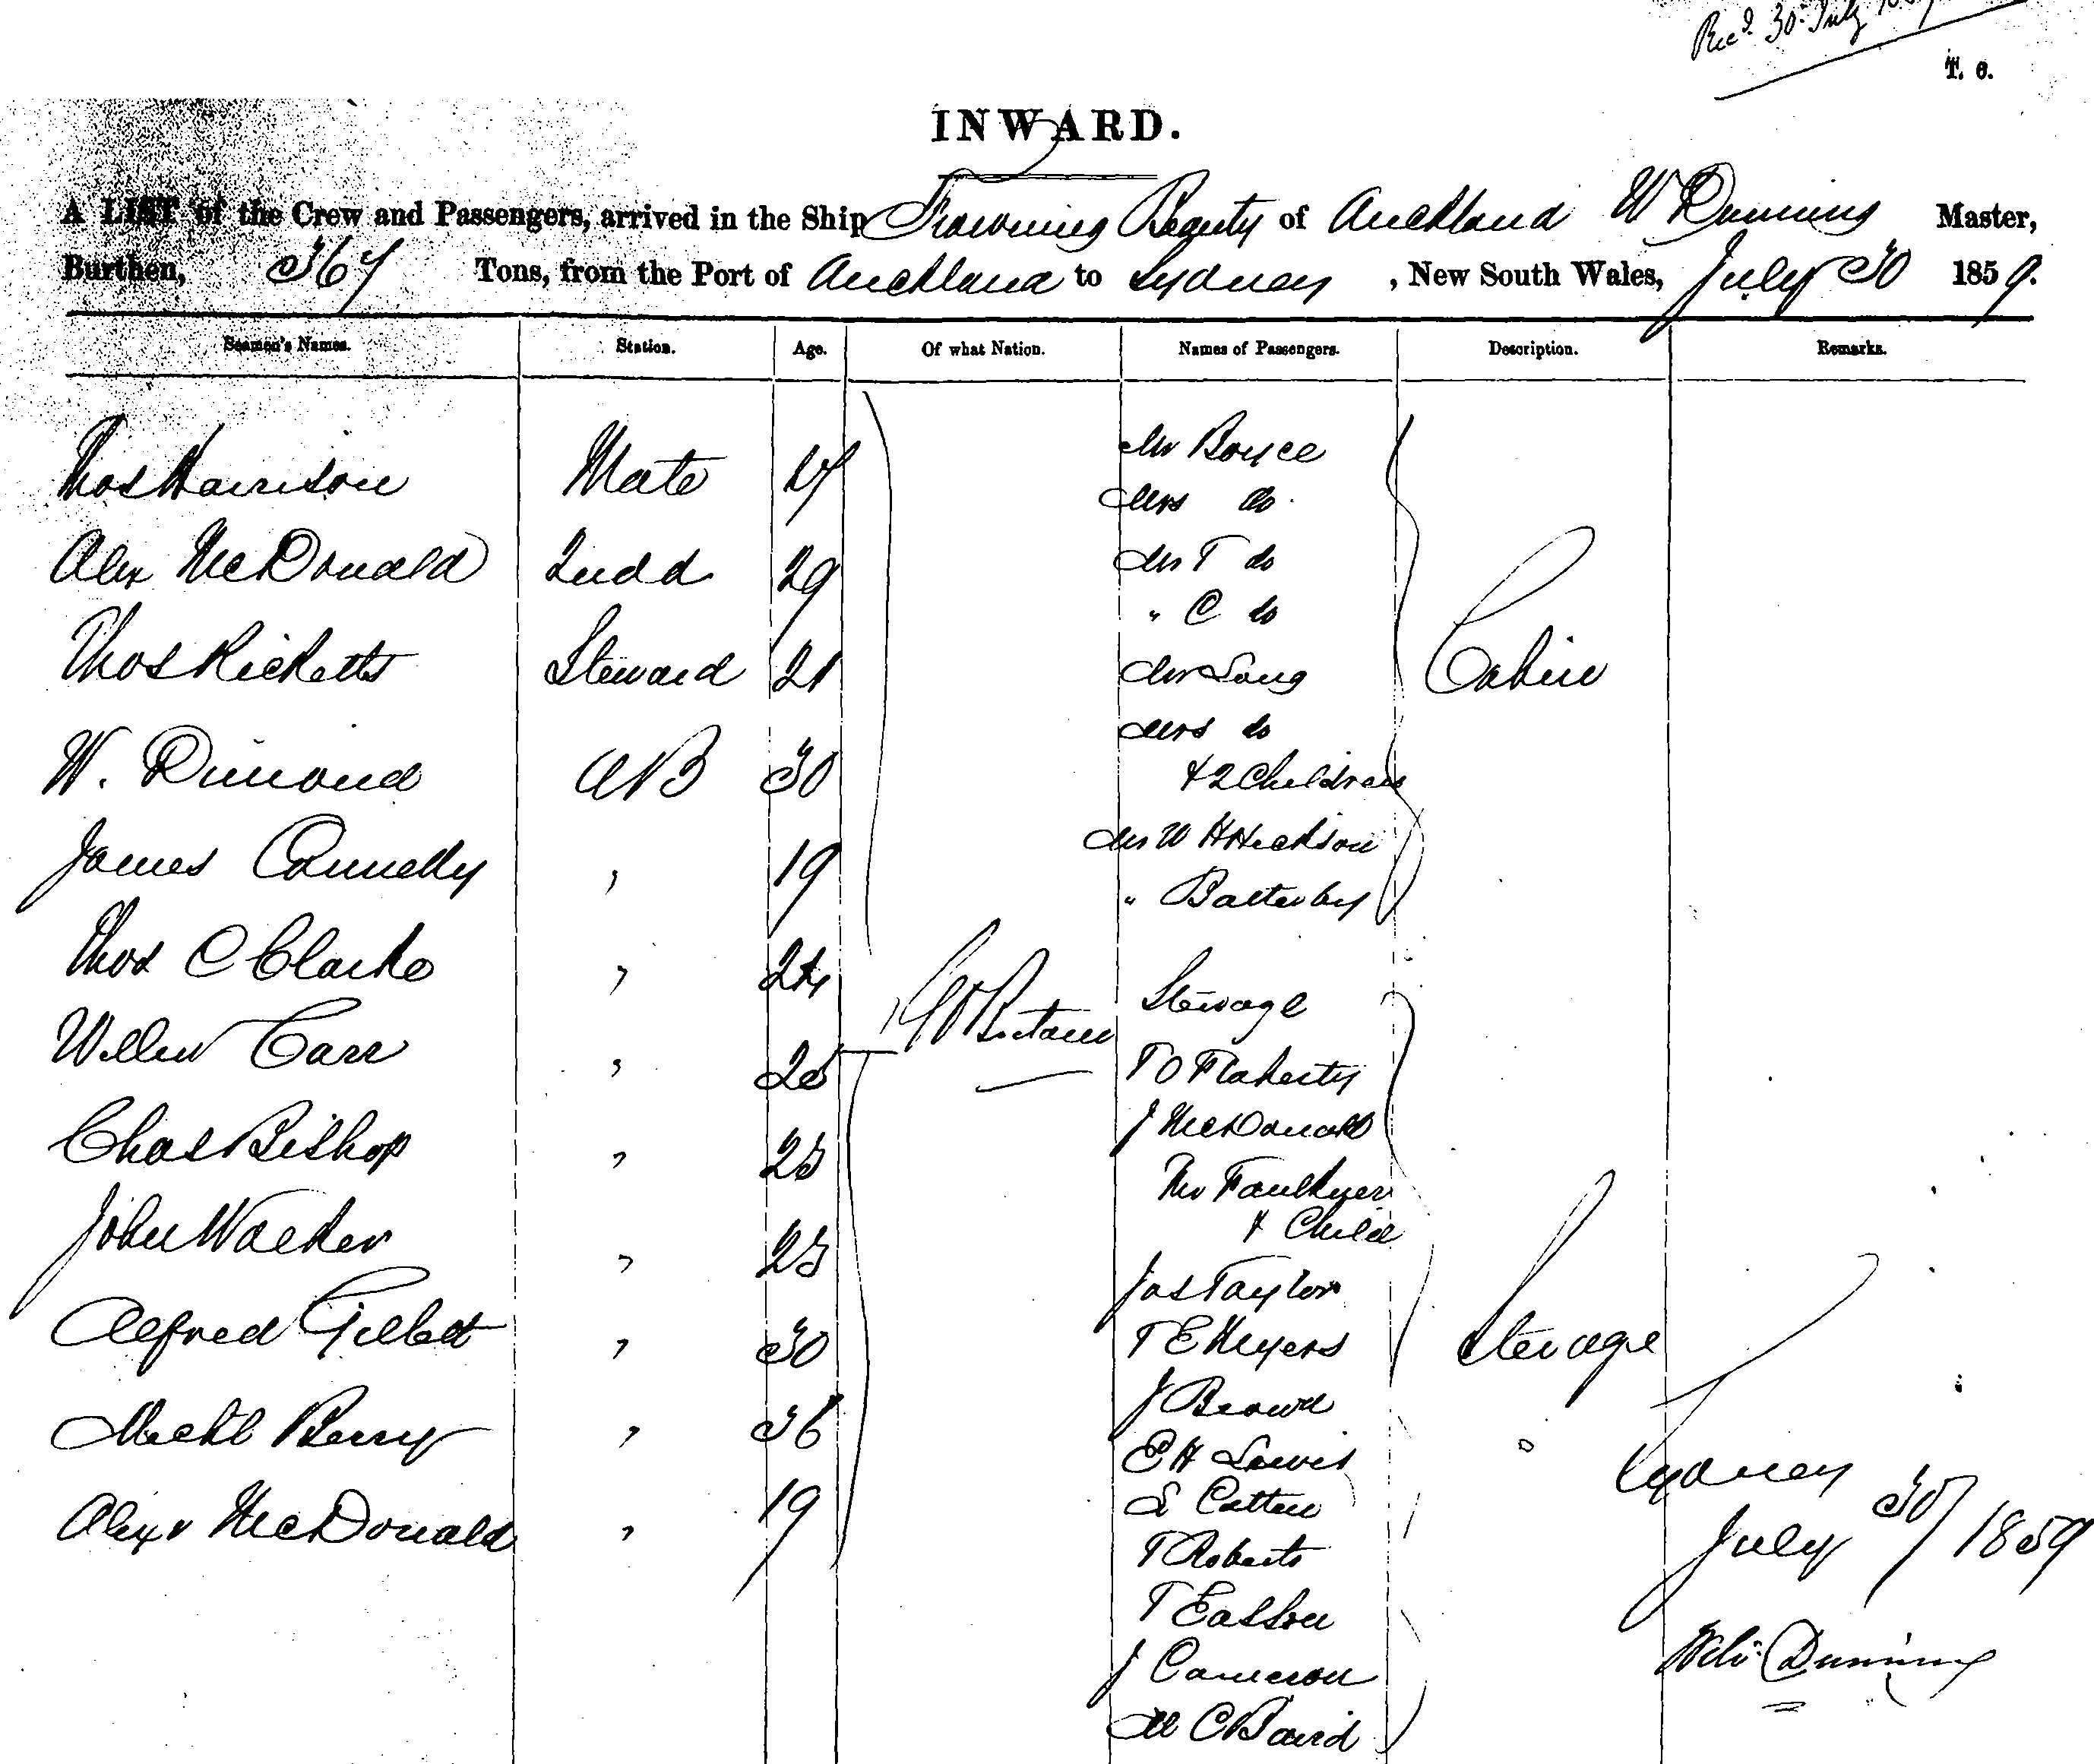 Recd. 30 July
T. O.
INWARD.
A LIST of the Crew and Passengers, arrived in the Ship Frowning Beauty of Auckland W Dunning Master,
Burthen, 367 Tons, from the Port of Auckland to Sydney, New South Wales, July 30 1859.
Seamen's Names. Station. Age. Of what Nation. Names of Passengers. Description. Remarks.
Thos Harrison Mate
Alex McDonald 29
Thos Ricketts Steward 21
W. Dimond AB 30
James Connelly " 19
Thos C Clarke " 24
Willm Carr "
Chas Bishop " 25
John Walker " 25
Alfred Gilbert " 30
Michl Berry " 36
Alexr McDonald " 19
Gt Britain
Mr Boyce
Mrs do
Mr T do
" C do
Mr Long
Mrs do
+ 2 Children
Mr W H Hickson
" Batterby
Cabin
Steerage
T O Flaherty
J McDonald
Faulkner
+ Child
Jas Taylor
T E Meyers
J Brown
E H Lewis
S Catten
T Roberts
T Easson
J Cameron
M C Baird
Steerage
Sydney
July 30/1859
Wm Dunning